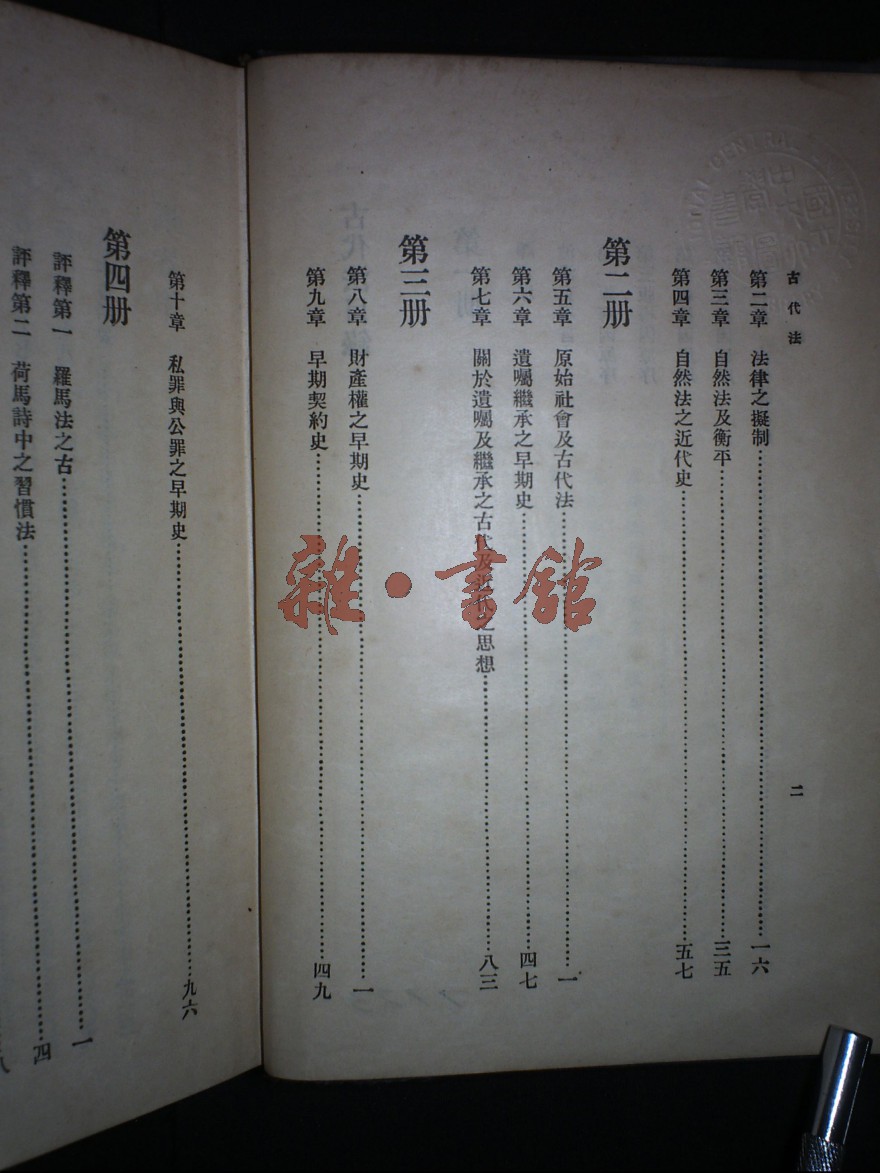 古代法
二
第二章　法律之擬制……一六
第三章　自然法及衡平……三五
第四章　自然法之近代史……五七
第二册
第五章　原始社會及古代法……一
第六章　遺囑繼承之早期史……四七
第七章　關於遺囑及繼承之古代及近代之思想……八三
第三册
第八章　財產權之早期史……一
第九章　早期契約史……四九
第十章　私罪與公罪之早期史……九六
第四册
評釋第一　羅馬法之古……一
評釋第二　荷馬詩中之習慣法……四
雜·書館